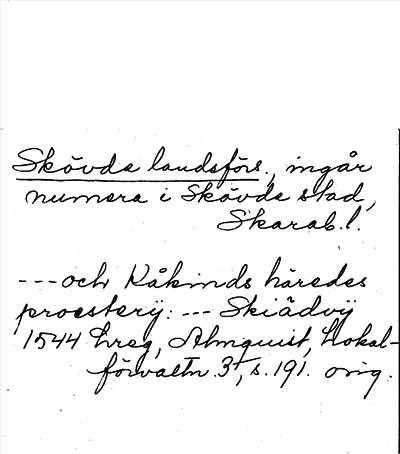 Skövde landsförs., ingår
numera i Skövde stad,
Skarab. l.
--- och Kåkinds häredes
proesterij: --- Skiädvij
1544 Lreg, Almquist, Lokal-
förvaltn. 3, s. 191. orig.